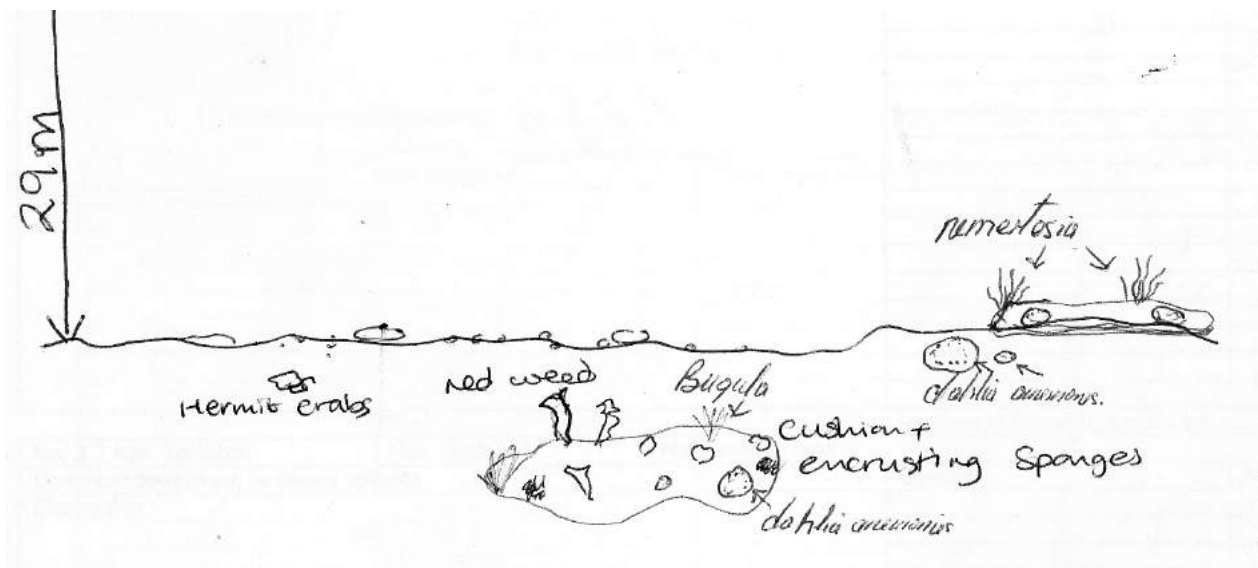 29m
nemertosia
Hermit crabs
red weed
Bugula
dahlia anemonis.
cushion +
encrusting Sponges
dahlia anemonis